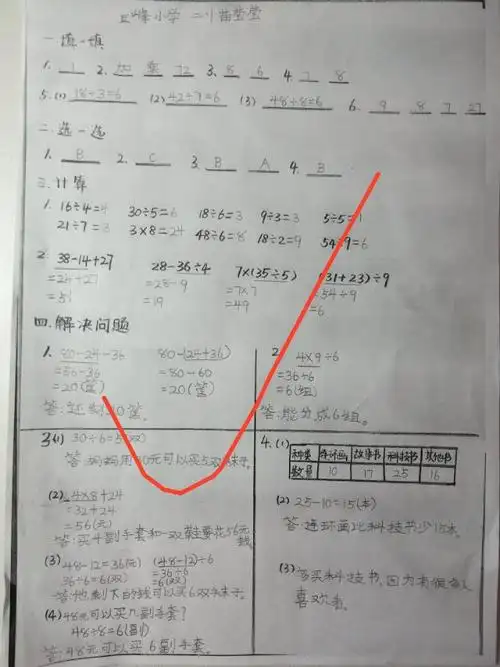 小学 二小
一.填一填
1. 1 2. 72 3. 8 6 4. 7 8
5.(1) 18÷3=6 (2) 42÷7=6 (3) 48÷8=6 6. 9 8 7 27
二.选一选
1. B 2. C 3. B A 4. B
三.计算
1. 16÷4=4 30÷5=6 18÷6=3 9÷3=3 5÷5=1
21÷7=3 3×8=24 48÷6=8 18÷2=9 54÷9=6
2. 38-14+27 28-36÷4 7×(35÷5) (31+23)÷9
=24+27 =28-9 =7×7 =54÷9
=51 =19 =49 =6
四.解决问题
1. 80-24-36 80-(24+36)
=56-36 =80-60
=20(筐) =20(筐)
答:还剩20筐。
2. 4×9÷6
=36÷6
=6(组)
答:能分成6组。
3(1) 30÷6=5(双)
答:妈妈用30元可以买5双袜子。
(2) 4×8+24
=32+24
=56(元)
答:买4副手套和一双鞋要花56元钱。
(3) 48-12=36(元) (48-12)÷6
36÷6=6(双) =36÷6
=6(双)
答:他剩下的钱可以买6双袜子。
(4) 48元可以买几副手套?
48÷8=6(副)
答:48元可以买6副手套。
4.(1)
种类 连环画 故事书 科技书 其他书
数量 10 17 25 16
(2) 25-10=15(本)
答:连环画比科技书少15本。
(3) 多买科技书,因为有很多人
喜欢看。